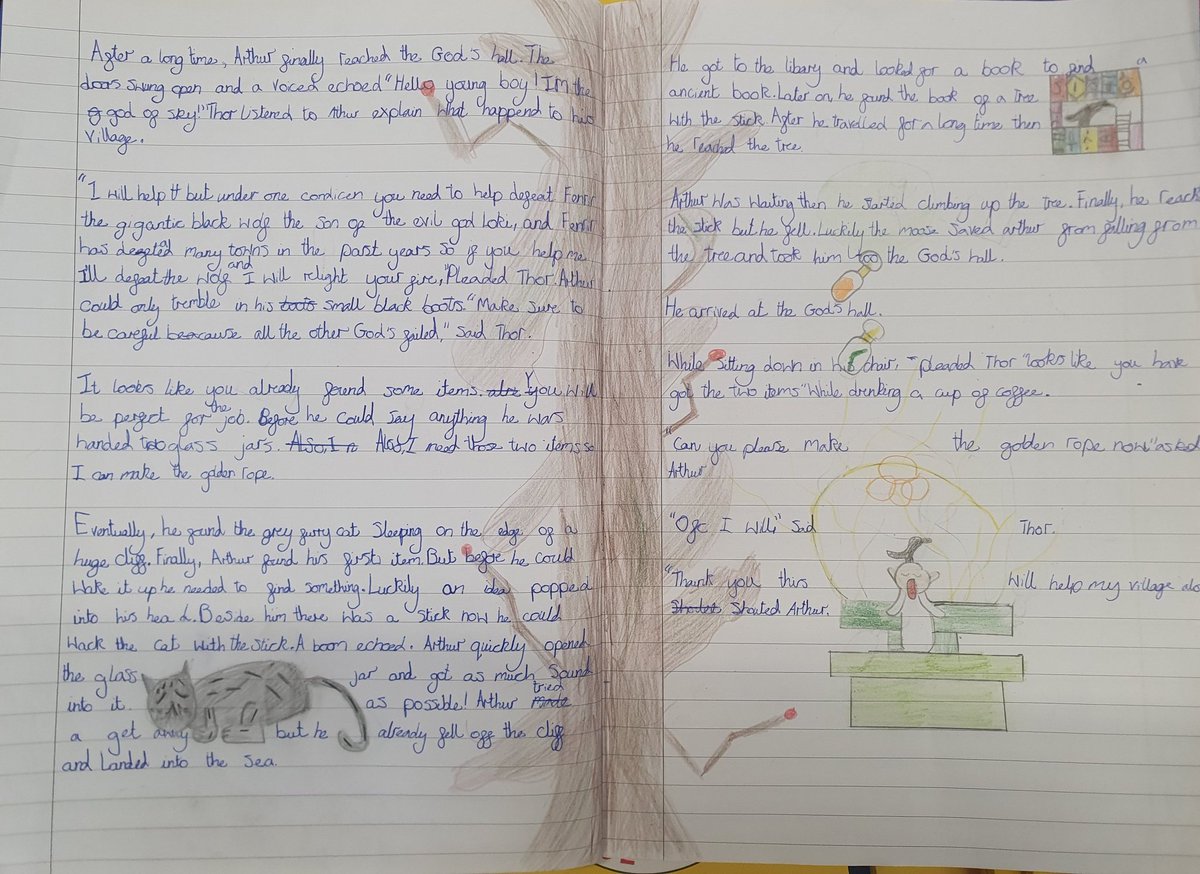 After a long time, Arthur finally reached the God's hall. The
doors swung open and a voiced echoed "Hello young boy! I'm the
god of sky!" Thor listered to Athur explain what happend to his
village.
"I will help it but under one condicen you need to help defeat Fenrir
the gigantic black wolf the son of the evil god loki, and Fenrir
has defeated many towns in the past years so if you help me
I'll defeat the wolf and I will relight your fire, "Pleaded Thor. Arthur
could only tremble in his boots small black boots. "Make sure to
be careful beacause all the other God's failed," said Thor.
It looks like you already found some items. You will
be perfect for the job. Before he could say anything he was
handed two glass jars. Also, I Also, I need those two items so
I can make the golden rope.
Eventually, he found the grey furry cat sleeping on the edge of a
huge cliff. Finally, Arthur found his firsts item. But before he could
wake it up he needed to find something. Luckily an idea popped
into his head. Beside him there was a stick now he could
wack the cat with the stick. A boom echoed. Arthur quickly opened
the glass jar and got as much sound
into it. as possible! Arthur made tried
a get away but he already fell off the cliff
and landed into the sea.
He got to the libary and looked for a book to find a
ancient book. Later on, he found the book of a Tree
with the stick. After he travelled for a long time then
he reached the tree.
Arthur was waiting then he started climbing up the tree. Finally, he reach
the stick but he fell. Luckily the moose saved arthur from falling from
the tree and took him too the God's hall.
He arrived at the God's hall.
While sitting down in his chair, "pleaded Thor "looks like you have
got the two items" While drinking a cup of coffee.
"Can you please make the golden rope now" asked
Arthur
"Ofc I will" Sad Thor.
"Thank you this will help my village alo
Shouted Arthur.